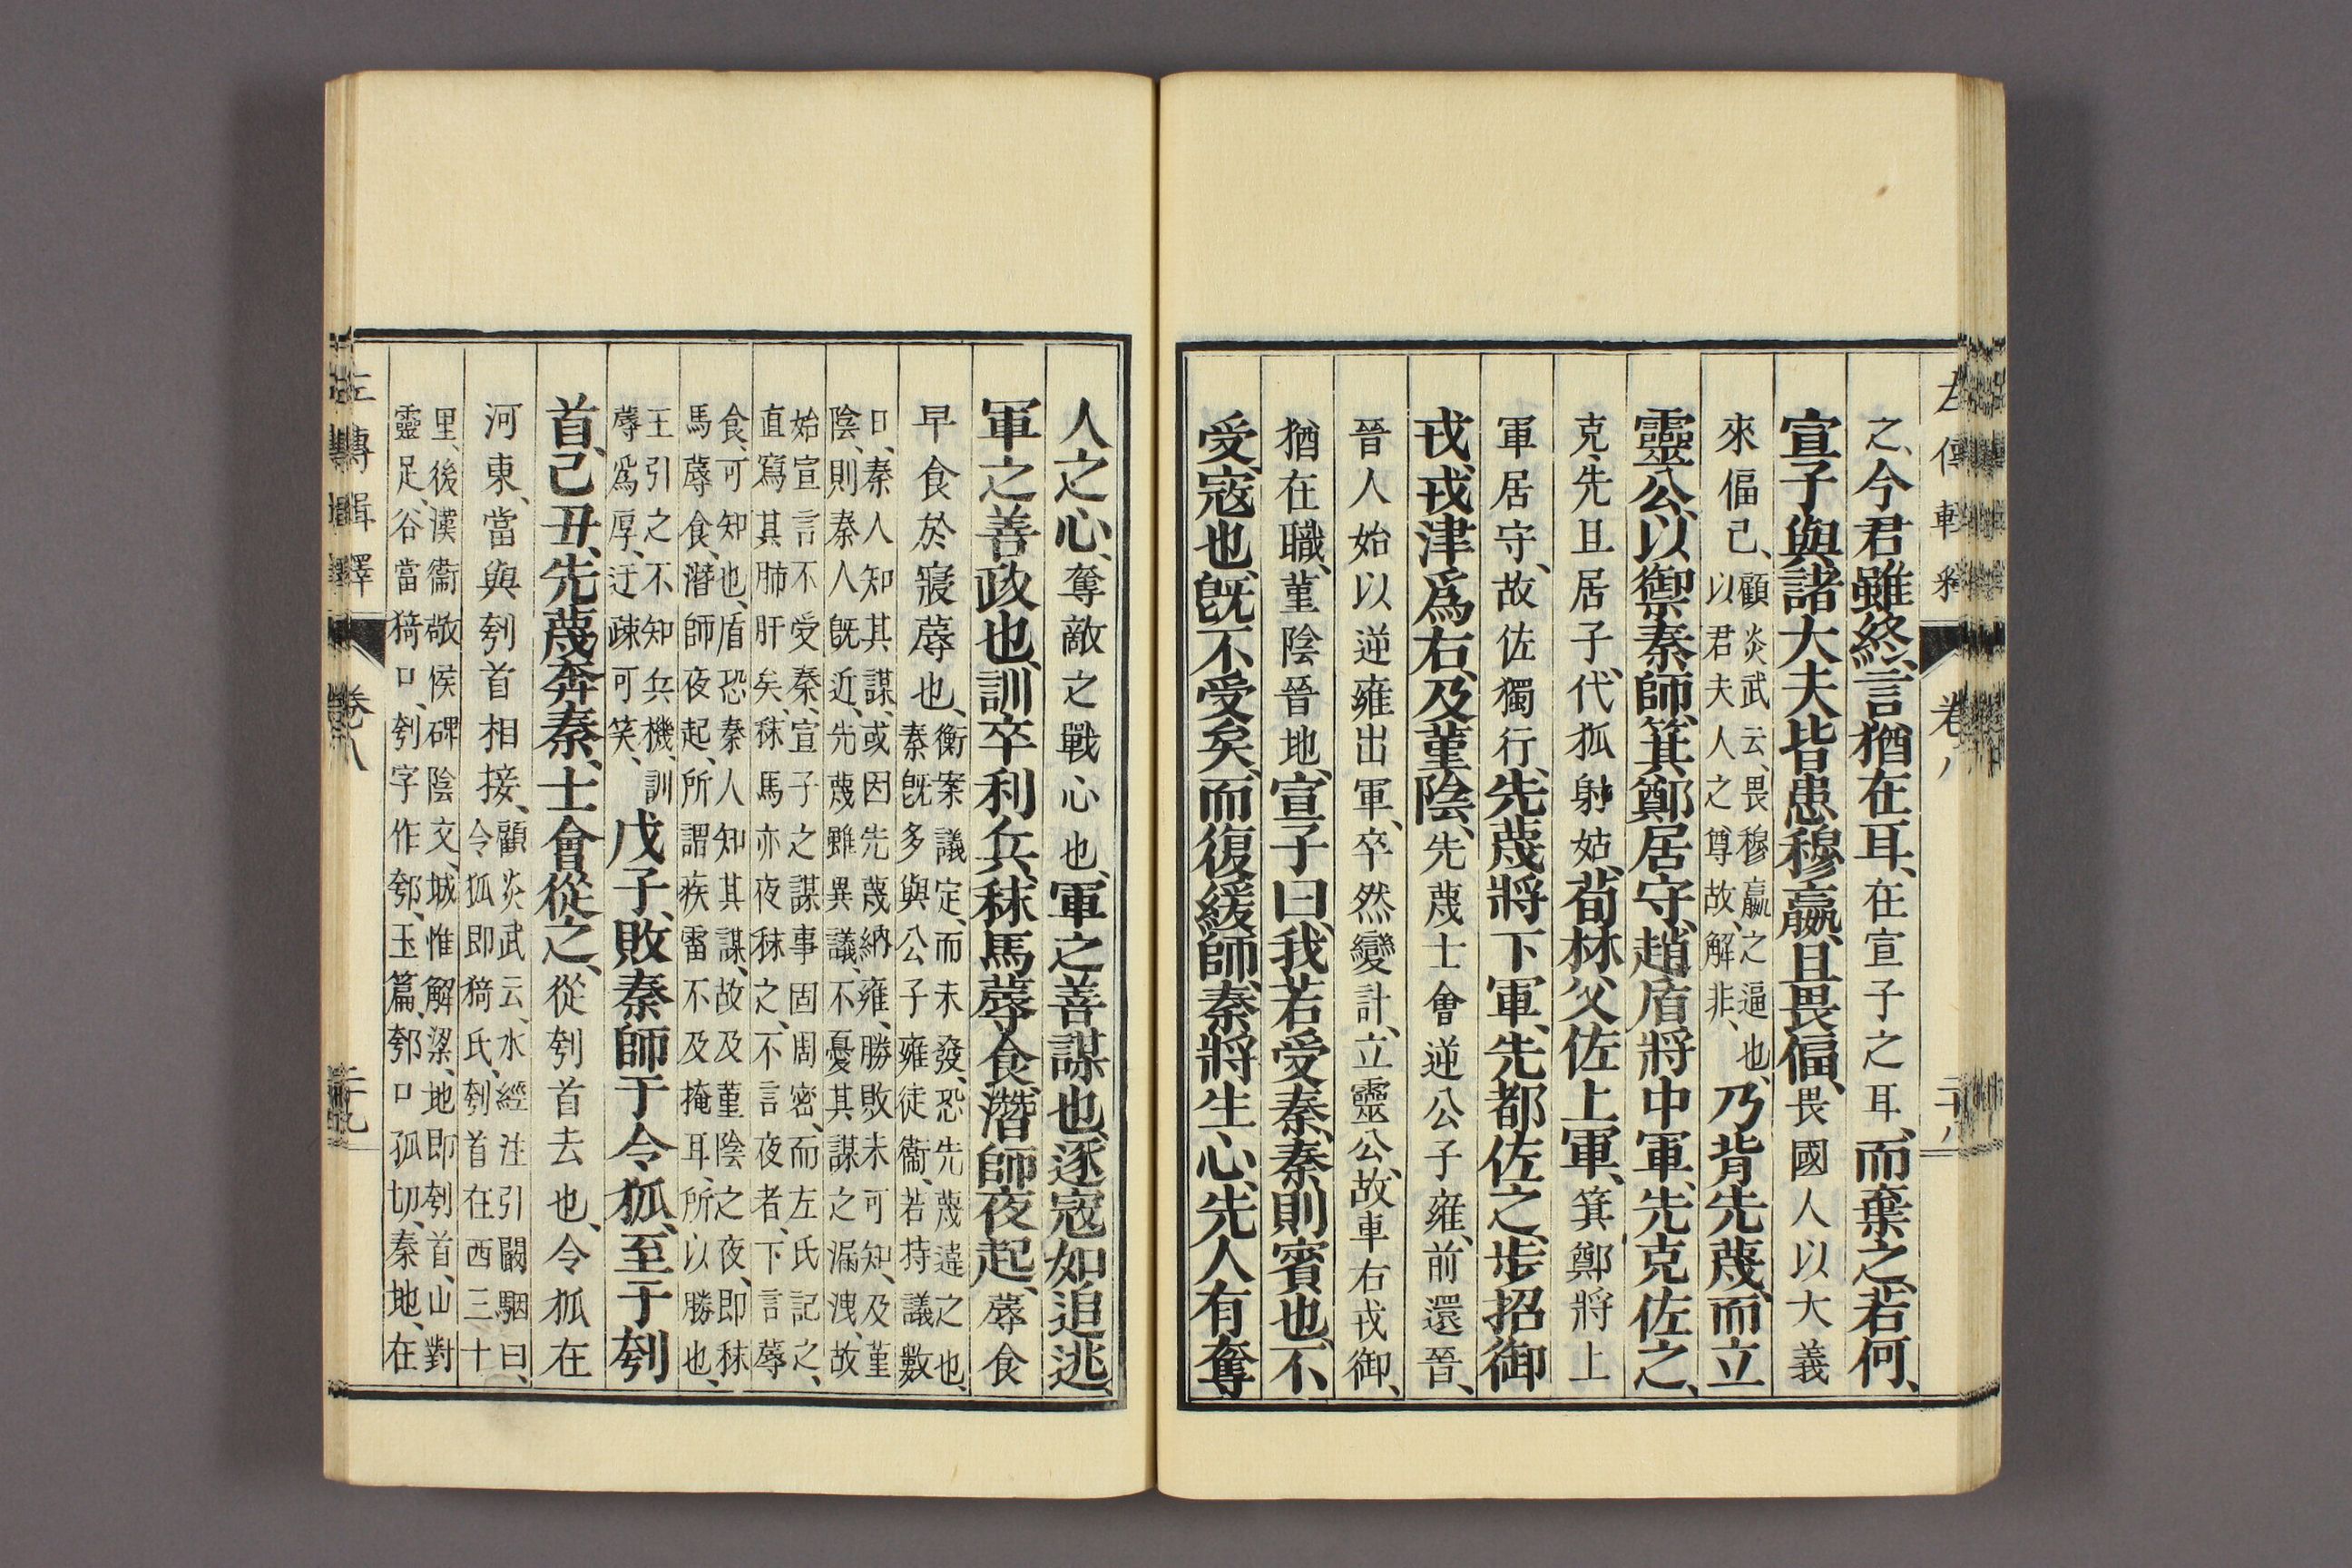 之、今君雖終、言猶在耳、在宣子之耳、而棄之、若何、
宣子與諸大夫皆患穆嬴、且畏偪、畏國人以大義
來偪己、顧炎武云、畏穆嬴之逼也、以君夫人之尊故、解非、乃背先蔑、而立
靈公、以禦秦師、箕鄭居守、趙盾將中軍、先克佐之、
克、先且居子、代狐射姑、荀林父佐上軍、箕鄭將上
軍居守、故佐獨行、先蔑將下軍、先都佐之、步招御
戎、戎津爲右、及菫陰、先蔑士會逆公子雍、前還晉、
晉人始以逆雍出軍、卒然變計、立靈公、故車右戎御、
猶在職、菫陰晉地、宣子曰、我若受秦、秦則賓也、不
受、寇也、旣不受矣、而復緩師、秦將生心、先人有奪
人之心、奪敵之戰心也、軍之善謀也、逐寇如追逃、
軍之善政也、訓卒利兵、秣馬蓐食、潛師夜起、蓐食
早食於寢蓐也、衡案議定、而未發、恐先蔑違之也、秦旣多與公子雍徒衞、若持議數
日、秦人知其謀、或因先蔑納雍、勝敗未可知、及菫陰、則秦人旣近、先蔑雖異議、不憂其謀之漏洩、故
始宣言不受秦、宣子之謀事固周密、而左氏記之、直寫其肺肝矣、秣馬亦夜秣之、不言夜者、下言蓐
食、可知也、盾恐秦人知其謀、故及菫陰之夜、卽秣馬蓐食、潛師夜起、所謂疾雷不及掩耳、所以勝也、
王引之不知兵機、訓蓐爲厚、迂疎可笑、戊子、敗秦師于令狐、至于刳
首、己丑、先蔑奔秦、士會從之、從刳首去也、令狐在
河東、當與刳首相接、顧炎武云、水經注引闞駰曰、令狐卽猗氏、刳首在西三十
里、後漢衞敬侯碑陰文、城惟解梁、地卽刳首、山對靈足、谷當猗口、刳字作郀、玉篇、郀口孤切、秦地、在
左傳輯釋 卷八 二十九